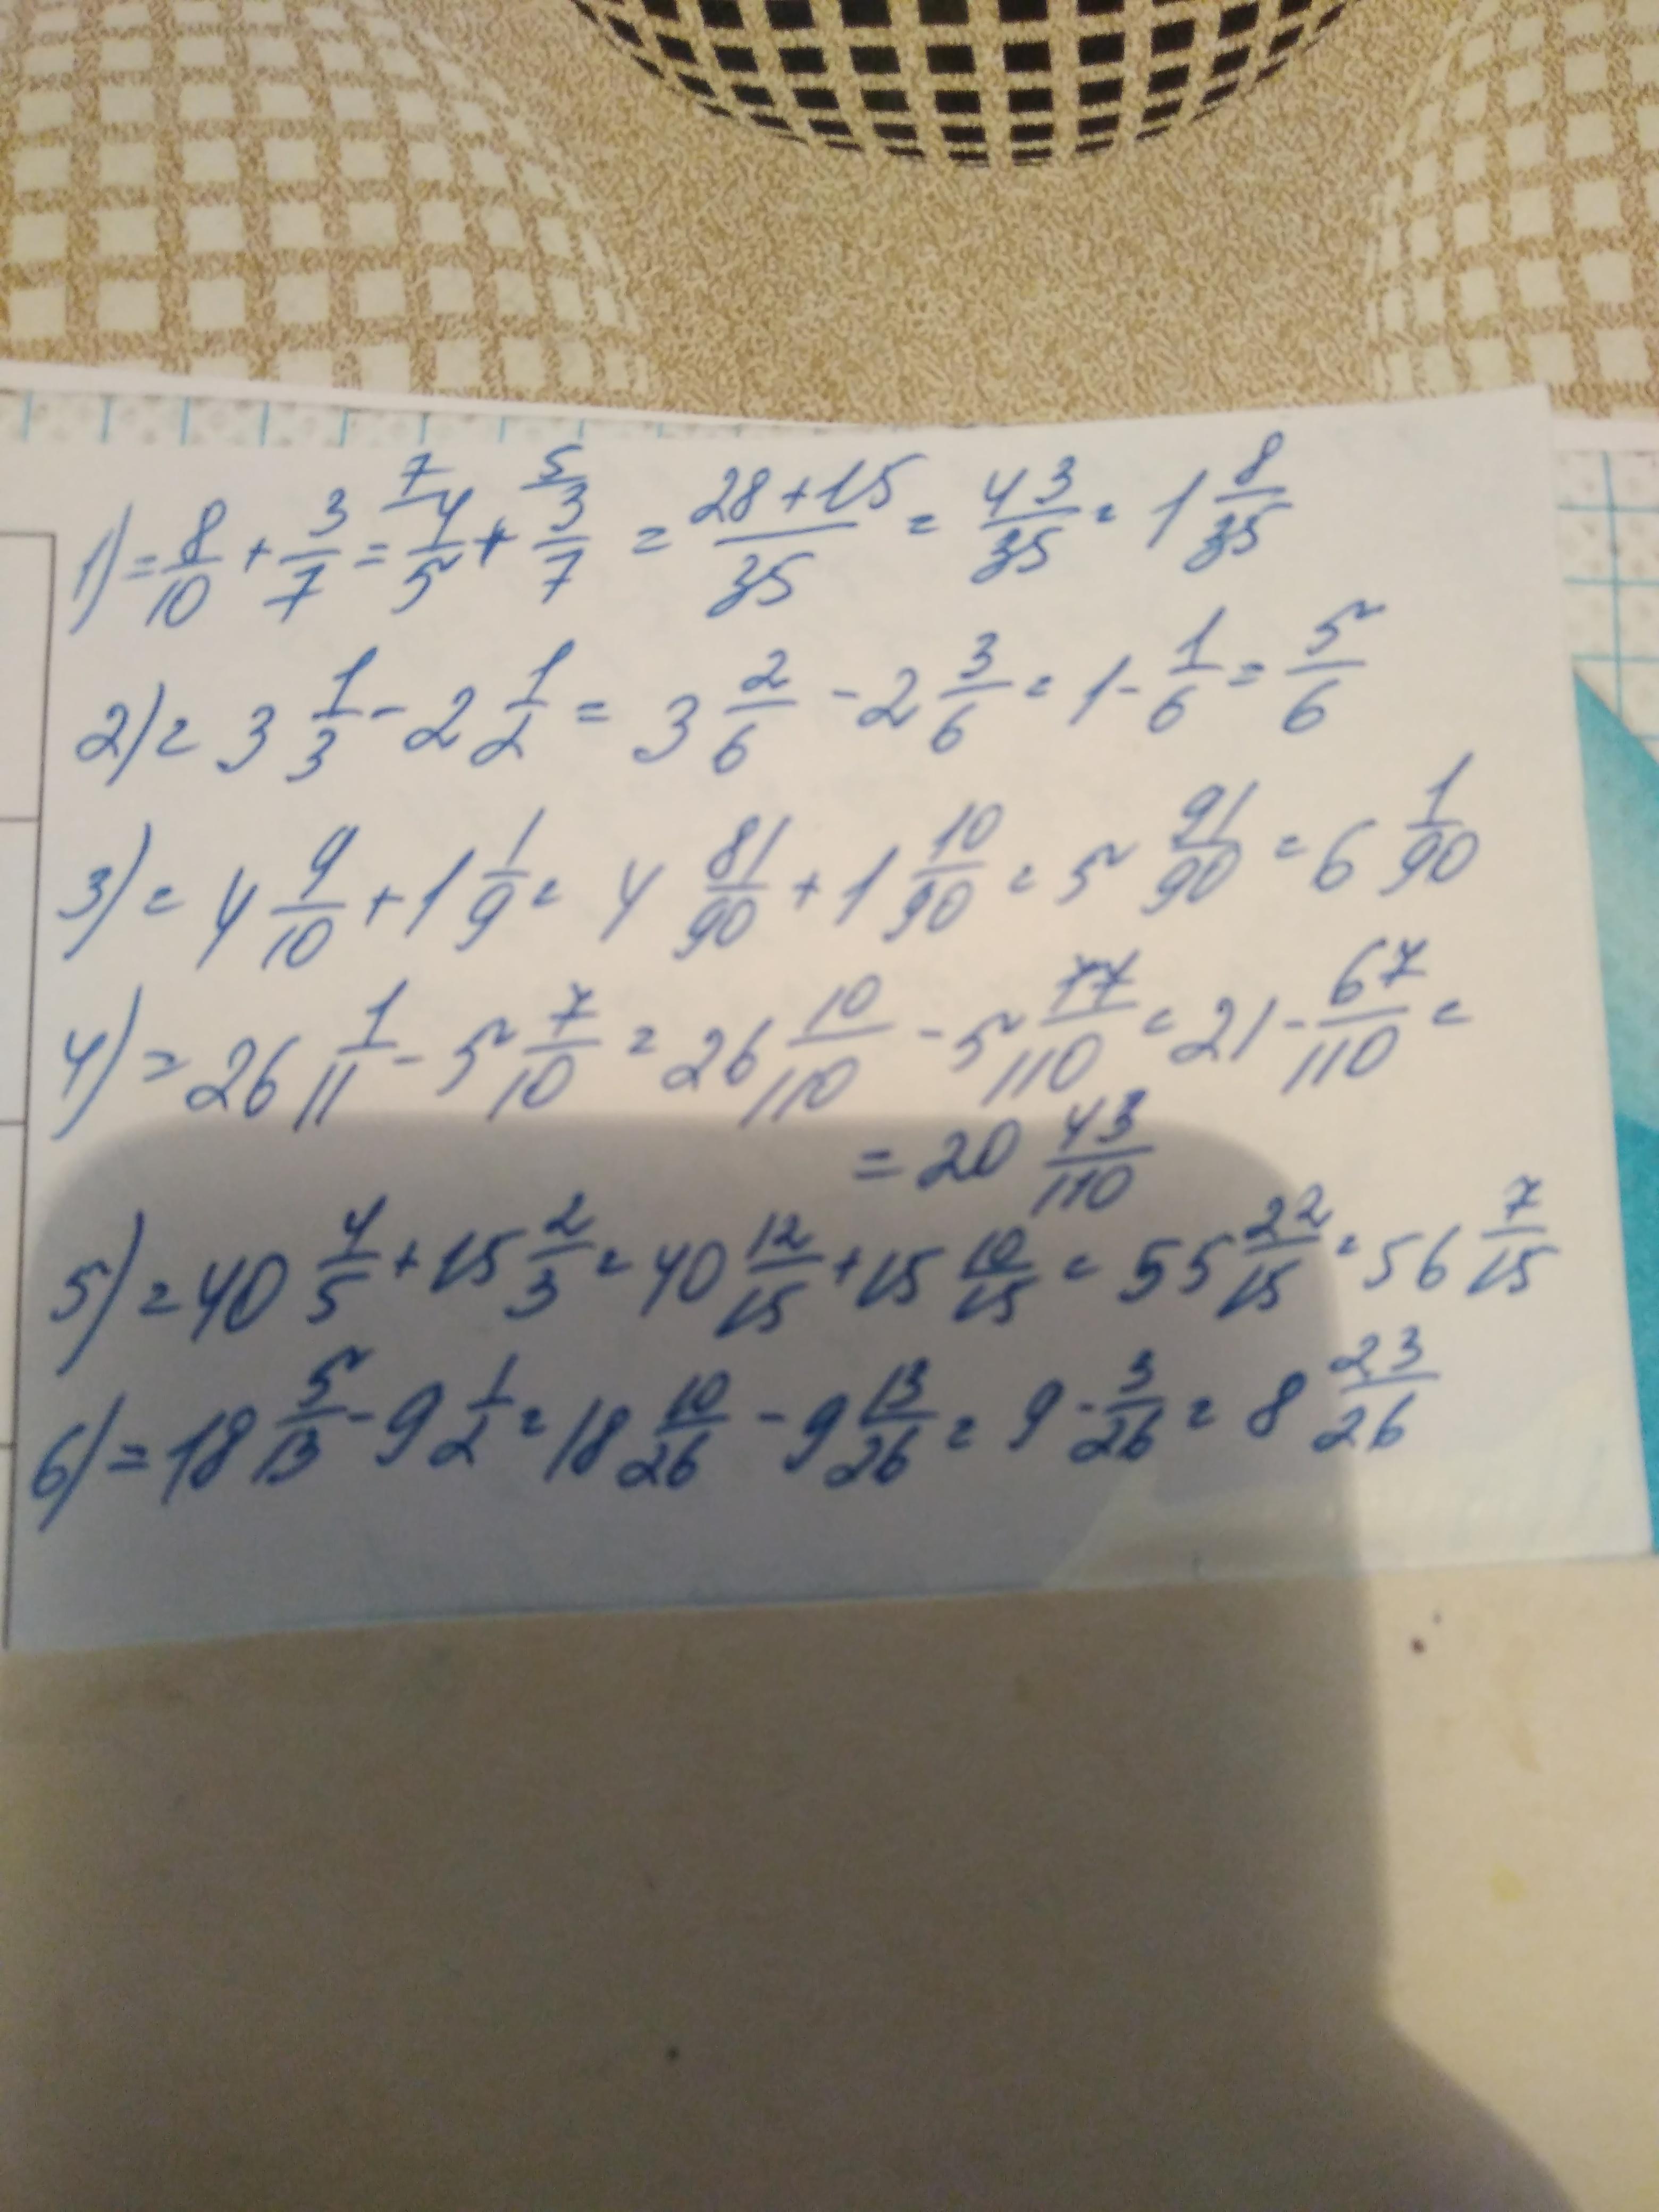 1) = 8/10 + 3/7 = 7 4/5 + 5 3/7 = 28+15/35 = 43/35 = 1 8/35
2) = 3 1/3 - 2 1/2 = 3 2/6 - 2 3/6 = 1 - 1/6 = 5/6
3) = 4 9/10 + 1 1/9 = 4 81/90 + 1 10/90 = 5 91/90 = 6 1/90
4) = 26 1/11 - 5 7/10 = 26 10/110 - 5 77/110 = 21 - 67/110 =
= 20 43/110
5) = 40 4/5 + 15 2/3 = 40 12/15 + 15 10/15 = 55 22/15 = 56 7/15
6) = 18 5/13 - 9 1/2 = 18 10/26 - 9 13/26 = 9 - 3/26 = 8 23/26